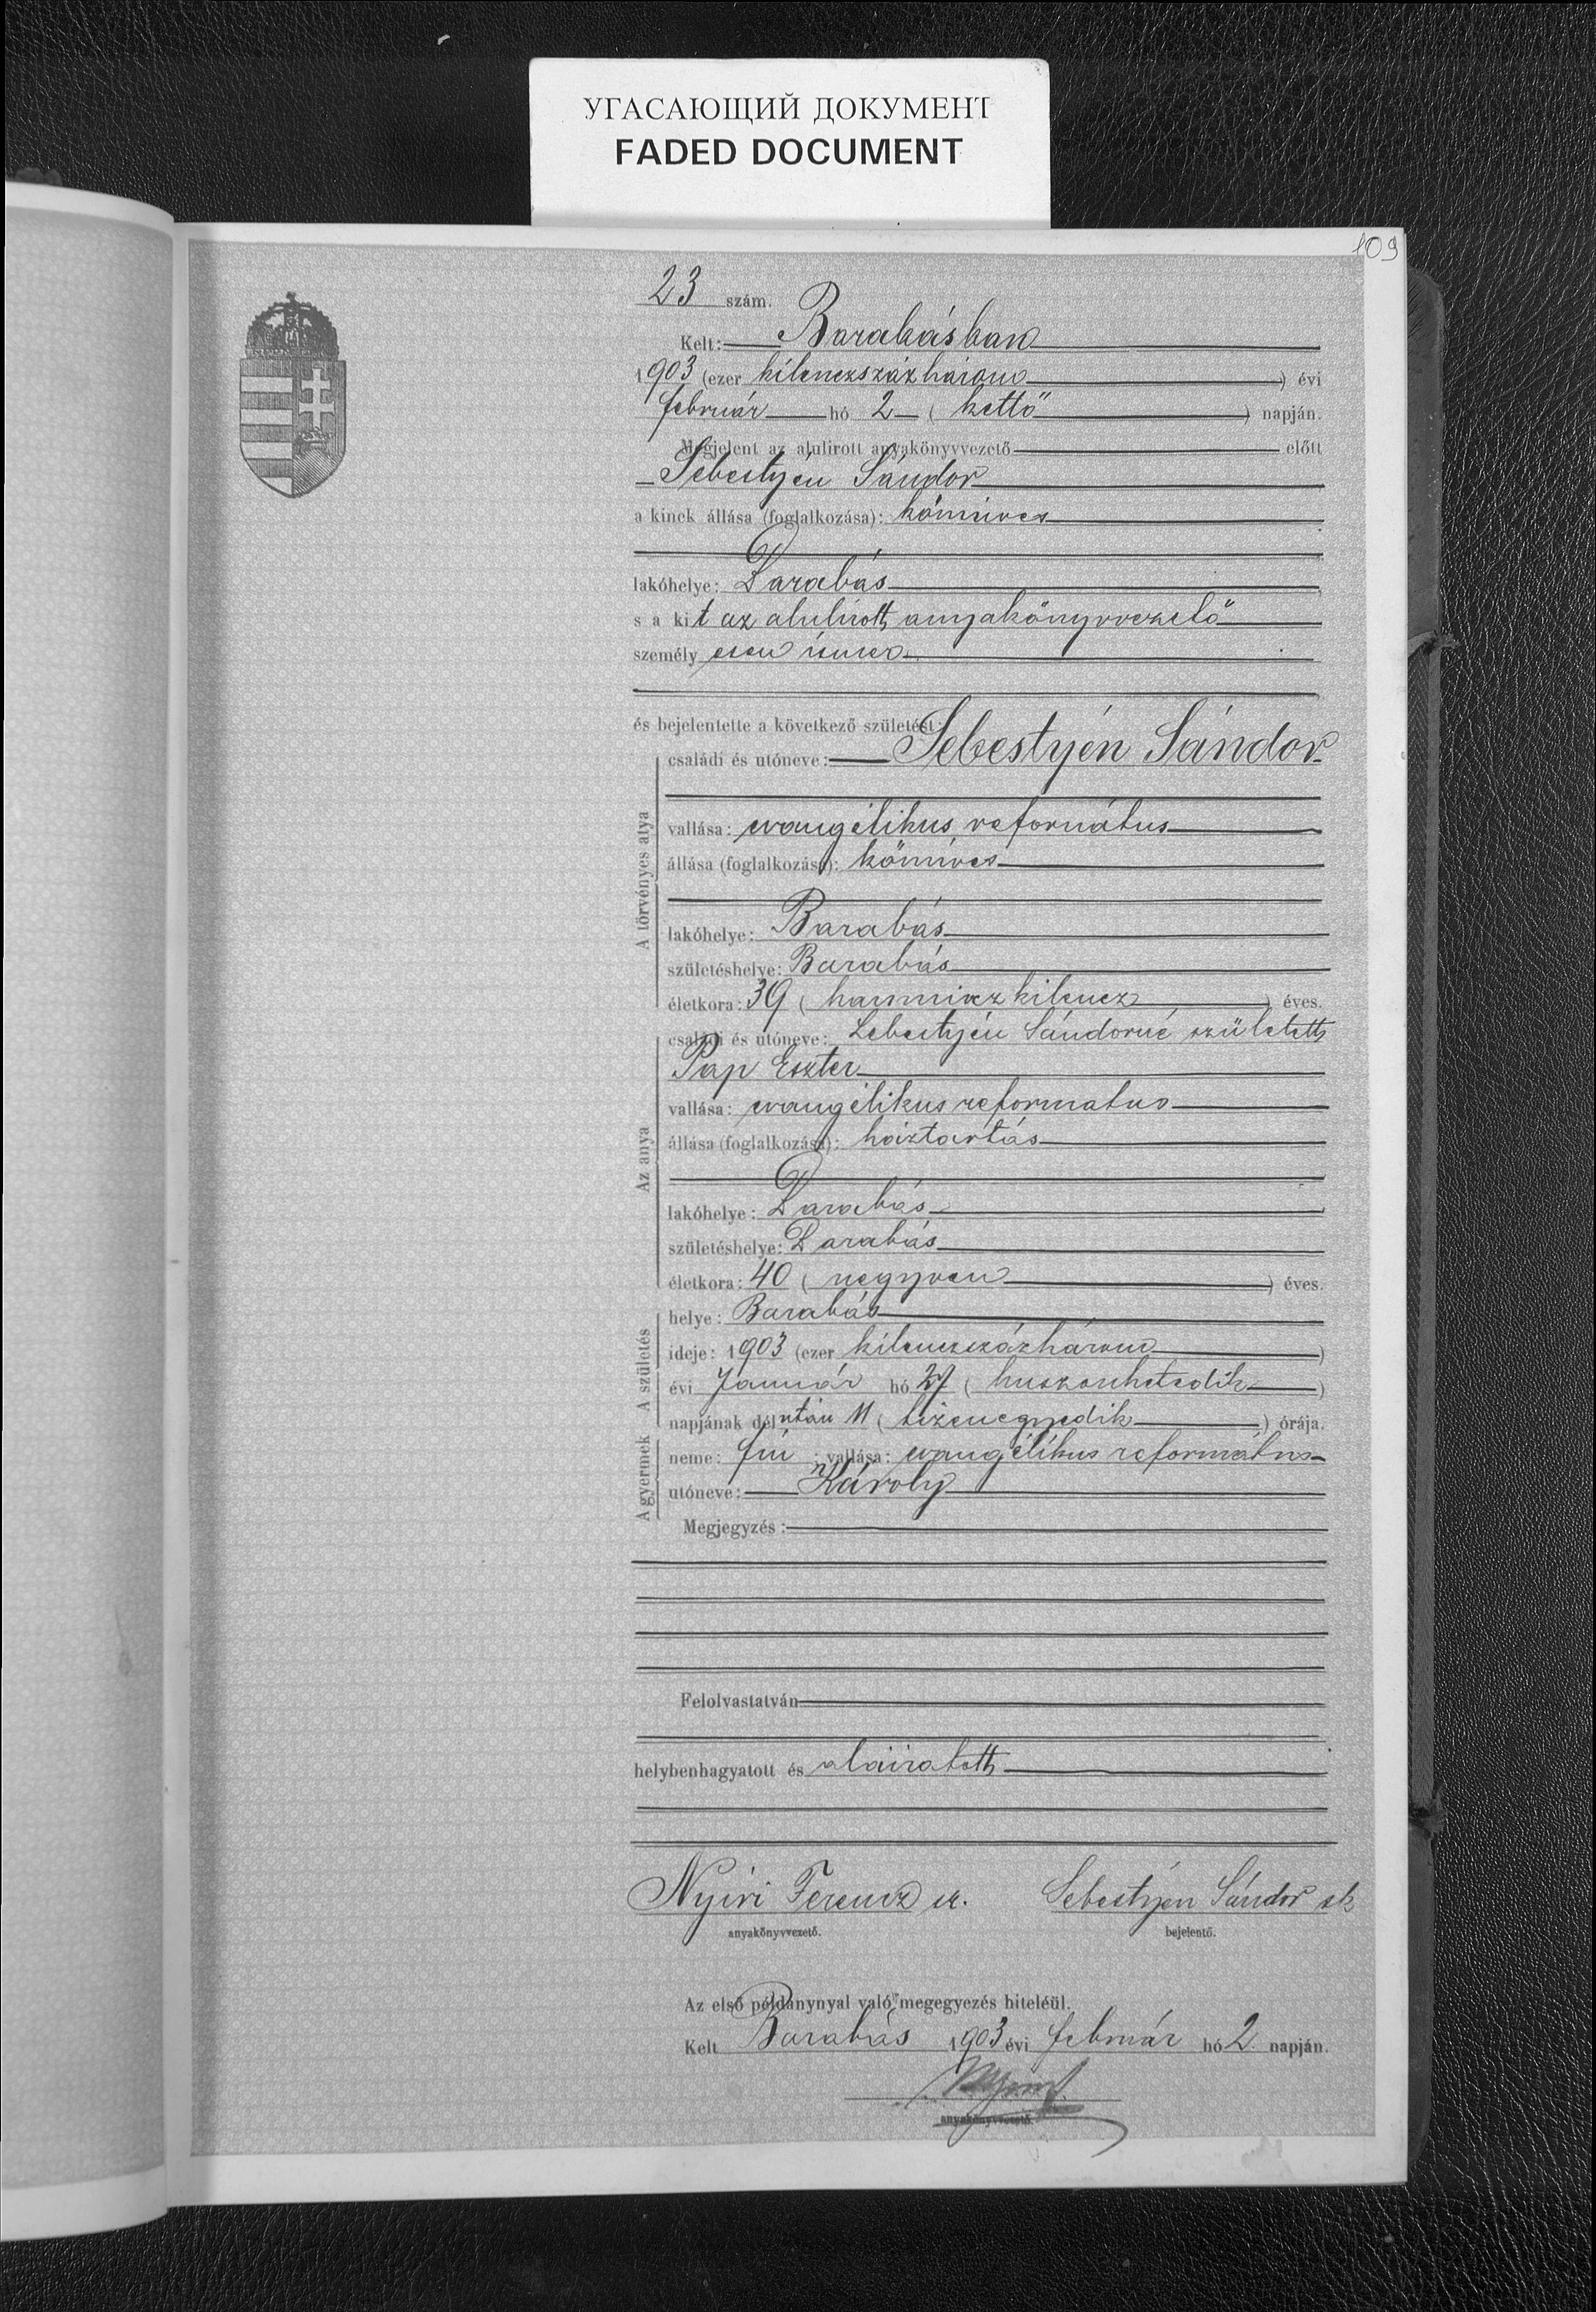 УГАСАЮЩИЙ ДОКУМЕНТ
FADED DOCUMENT
109
23 szám.
Kelt: Barabásban
1903 (ezer kilenczszázhárom) évi
február hó 2 (kettő) napján.
Megjelent az alulirott anyakönyvvezető előtt
Sebestyén Sándor
a kinek állása (foglalkozása): kőmíves
lakóhelye: Barabás
s a kit az alulirott anyakönyvvezető
személyesen ismer
és bejelentette a következő születést:
A törvényes atya
családi és utóneve: Sebestyén Sándor
vallása: evangélikus református
állása (foglalkozása): kőmíves
lakóhelye: Barabás
születéshelye: Barabás
életkora: 39 (harmincz kilencz) éves.
Az anya
családi és utóneve: Sebestyén Sándorné született
Pap Eszter
vallása: evangélikus reformatus
állása (foglalkozása): háztartás
lakóhelye: Barabás
születéshelye: Barabás
életkora: 40 (negyven) éves.
A születés
helye: Barabás
ideje: 1903 (ezer kilenczszázhárom)
évi Január hó 27 (huszonhetedik)
napjának délután 11 (tizenegyedik) órája.
A gyermek
neme: fiú; vallása: evangélikus református
utóneve: Károly
Megjegyzés:
Felolvastatván
helybenhagyatott és aláiratott
Nyiri Ferencz sk. Sebestyén Sándor sk
anyakönyvvezető. bejelentő.
Az első példánynyal való megegyezés hiteléül.
Kelt Barabás 1903 évi február hó 2. napján.
anyakönyvvezető.